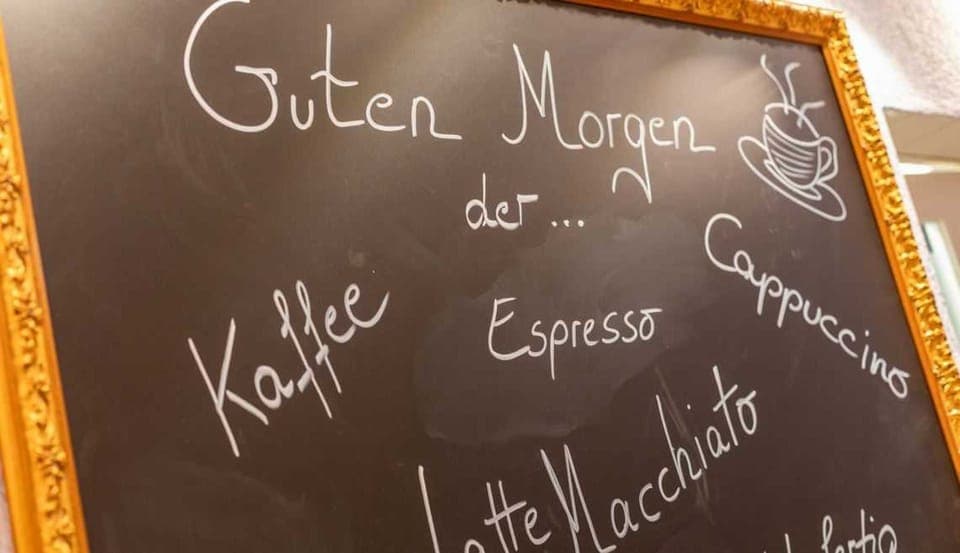 Guten Morgen
der...
Kaffee
Espresso
Cappuccino
Latte Macchiato
fertig